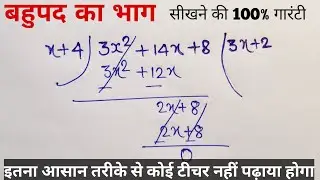 बहुपद का भाग सीखने की 100% गारंटी
x+4) 3x² + 14x + 8 (3x+2
3x² + 12x
2x+8
2x+8
0
इतना आसान तरीके से कोई टीचर नहीं पढ़ाया होगा